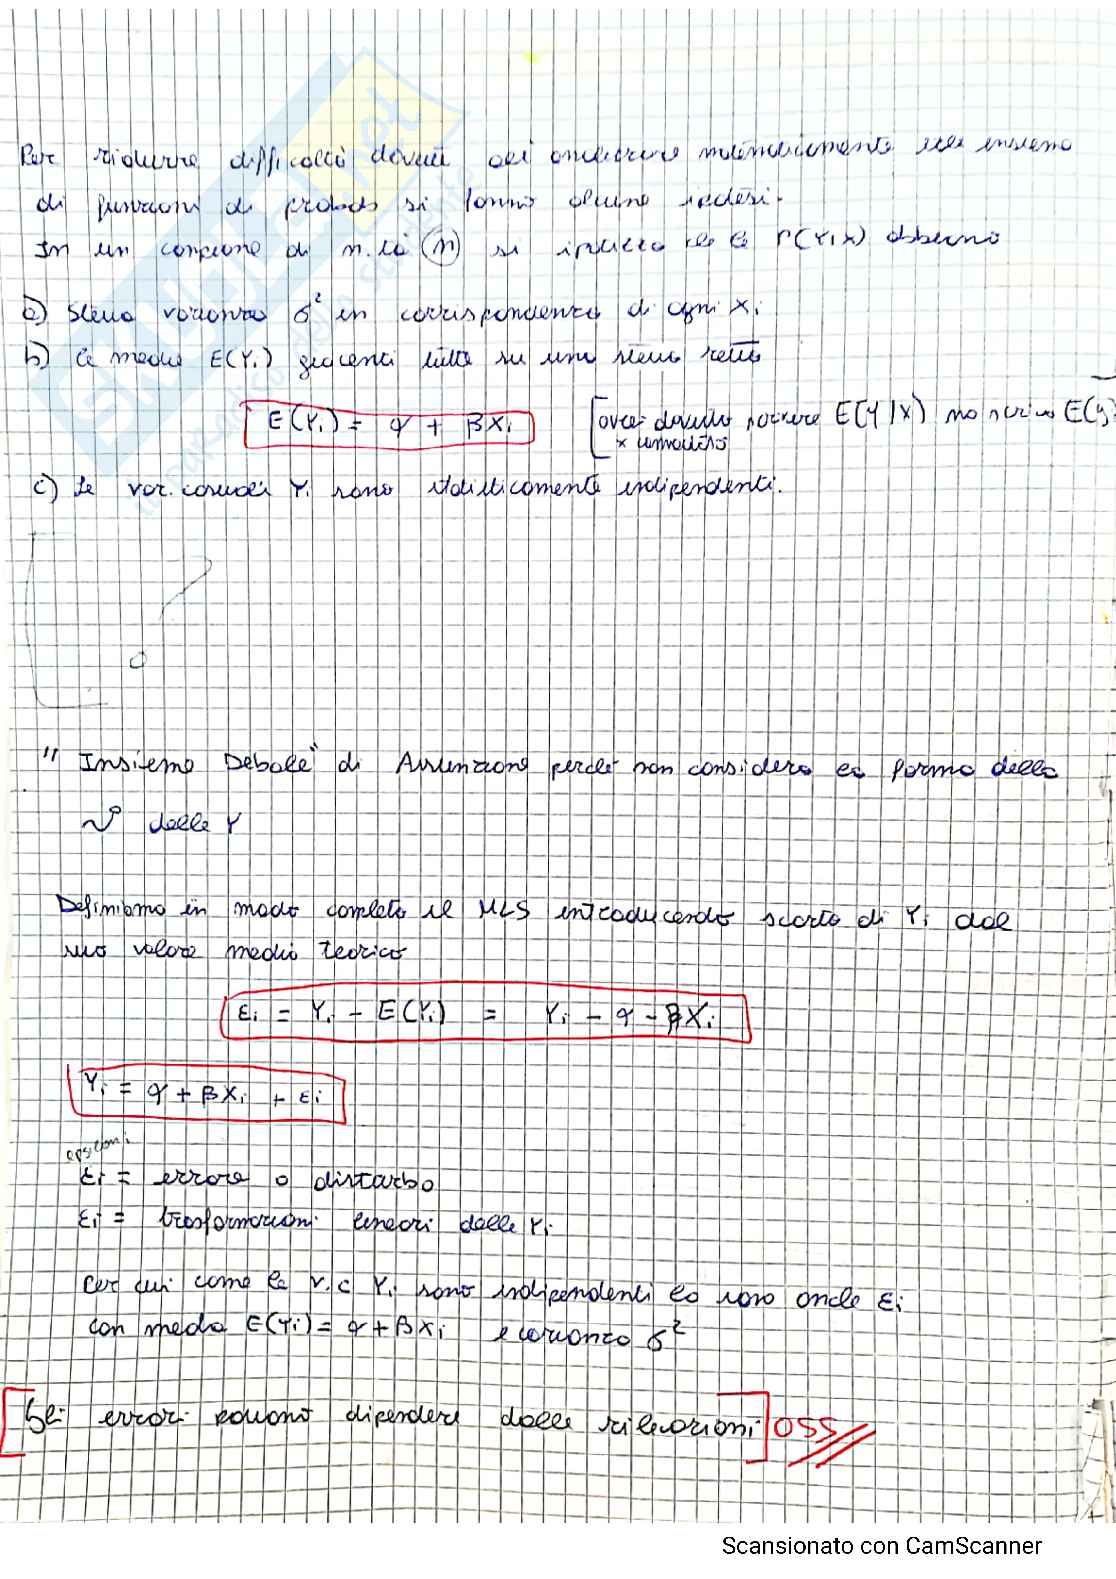 Per ridurre difficoltà dovute ad analizzare matematicamente un insieme
di funzioni di probab si fanno alcune ipotesi.
In un campione di n.tà (n) si ipotizza che le P(Y|X) abbiano
a) Stessa varianza σ² in corrispondenza di ogni Xi
b) le medie E(Yi) giacenti tutte su una stessa retta
E(Yi) = α + βXi
[avrei dovuto scrivere E(Y|X) ma scrivo E(Y)
x comodità
c) Le var. casuali Yi sono statisticamente indipendenti.
"Insieme Debole" di Assunzione perché non considera la forma della
delle Y
Definiamo in modo completo il MLS introducendo scarto di Yi dal
suo valore medio teorico
εi = Yi - E(Yi) = Yi - α - βXi
Yi = α + βXi + εi
epsilon i
εi = errore o disturbo
εi = trasformazioni lineari delle Yi
Per cui come le v.c Yi sono indipendenti lo sono anche εi
con media E(Yi) = α + βXi e varianza σ²
[Gli errori possono dipendere dalle rilevazioni] OSS
Scansionato con CamScanner